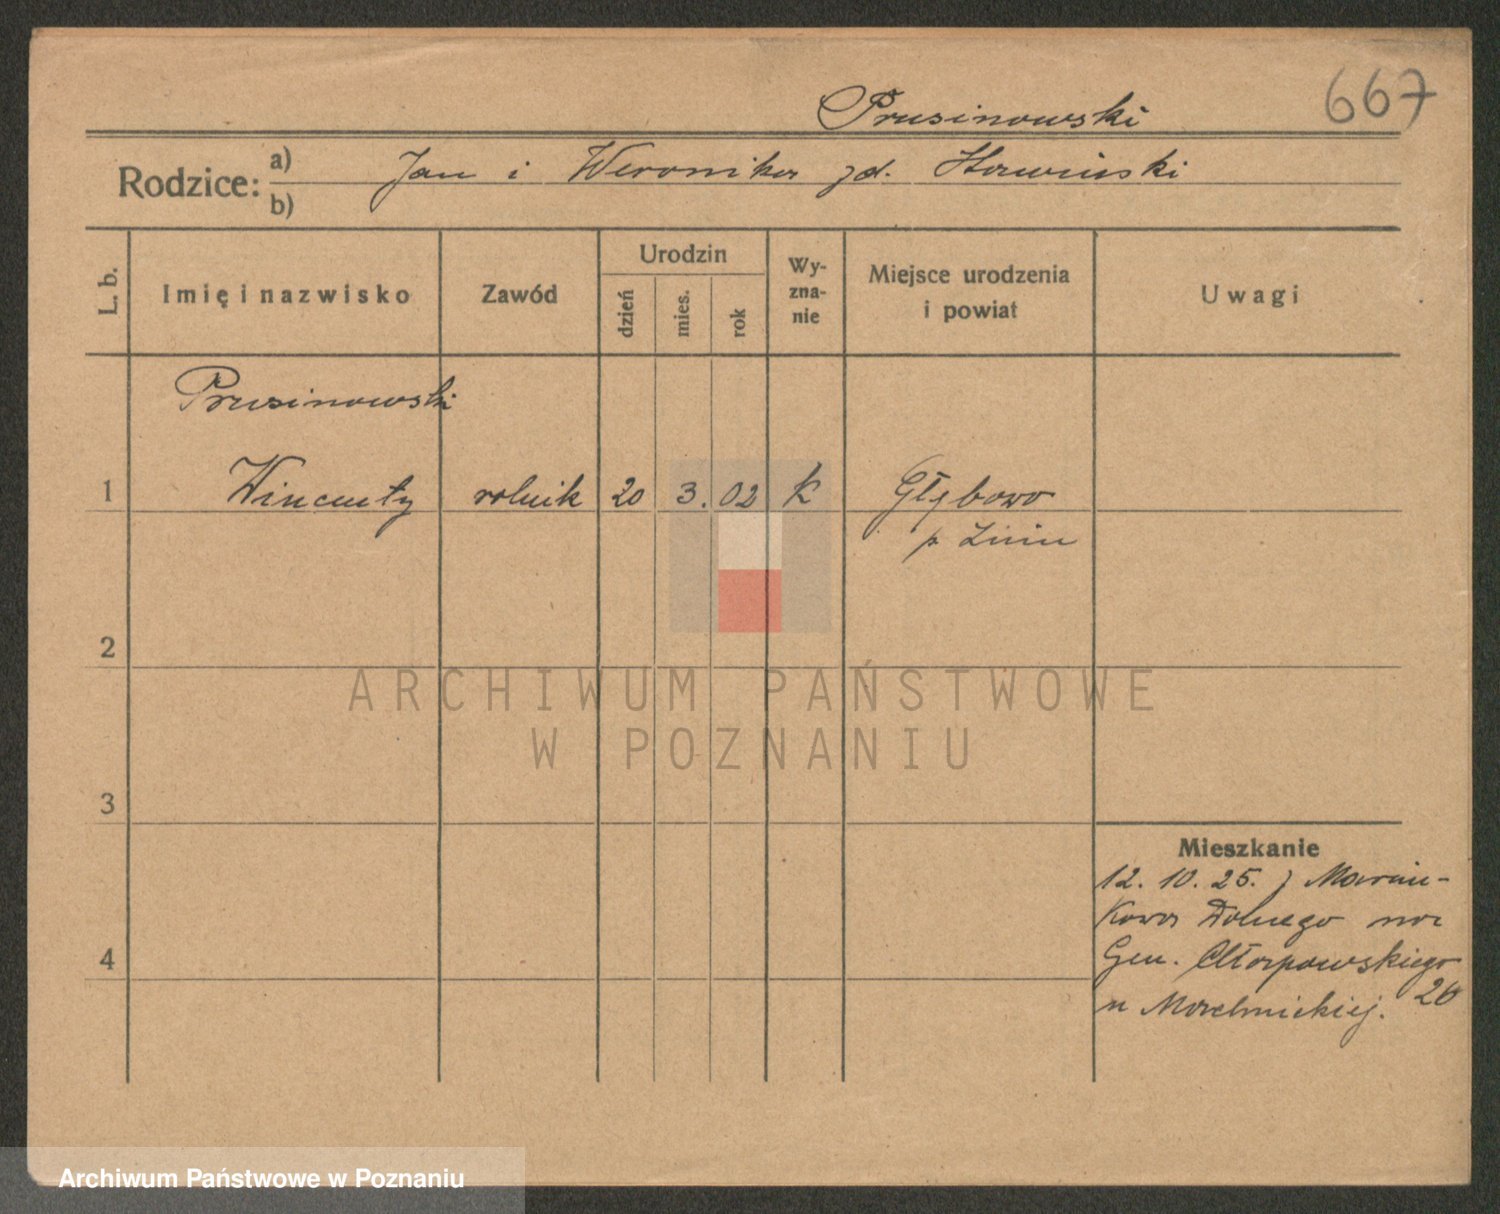 667
Prusinowski
Rodzice: a) Jan i Weronika zd. Stawiński
b)
L. b. Imię i nazwisko Zawód Urodzin dzień mies. rok Wyzna-nie Miejsce urodzenia i powiat Uwagi
Prusinowski
1 Wincenty rolnik 20 3. 02 k Głębowo
p Żnin
2
3
4
Mieszkanie
12. 10. 25. z Marcin-
kowa Dolnego na
Gen. Chłapowskiego
u 26
ARCHIWUM PAŃSTWOWE
W POZNANIU
Archiwum Państwowe w Poznaniu